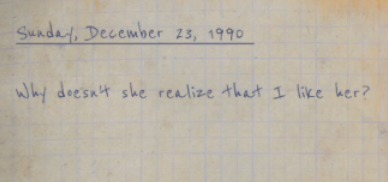 Sunday, December 23, 1990
Why doesn't she realize that I like her?